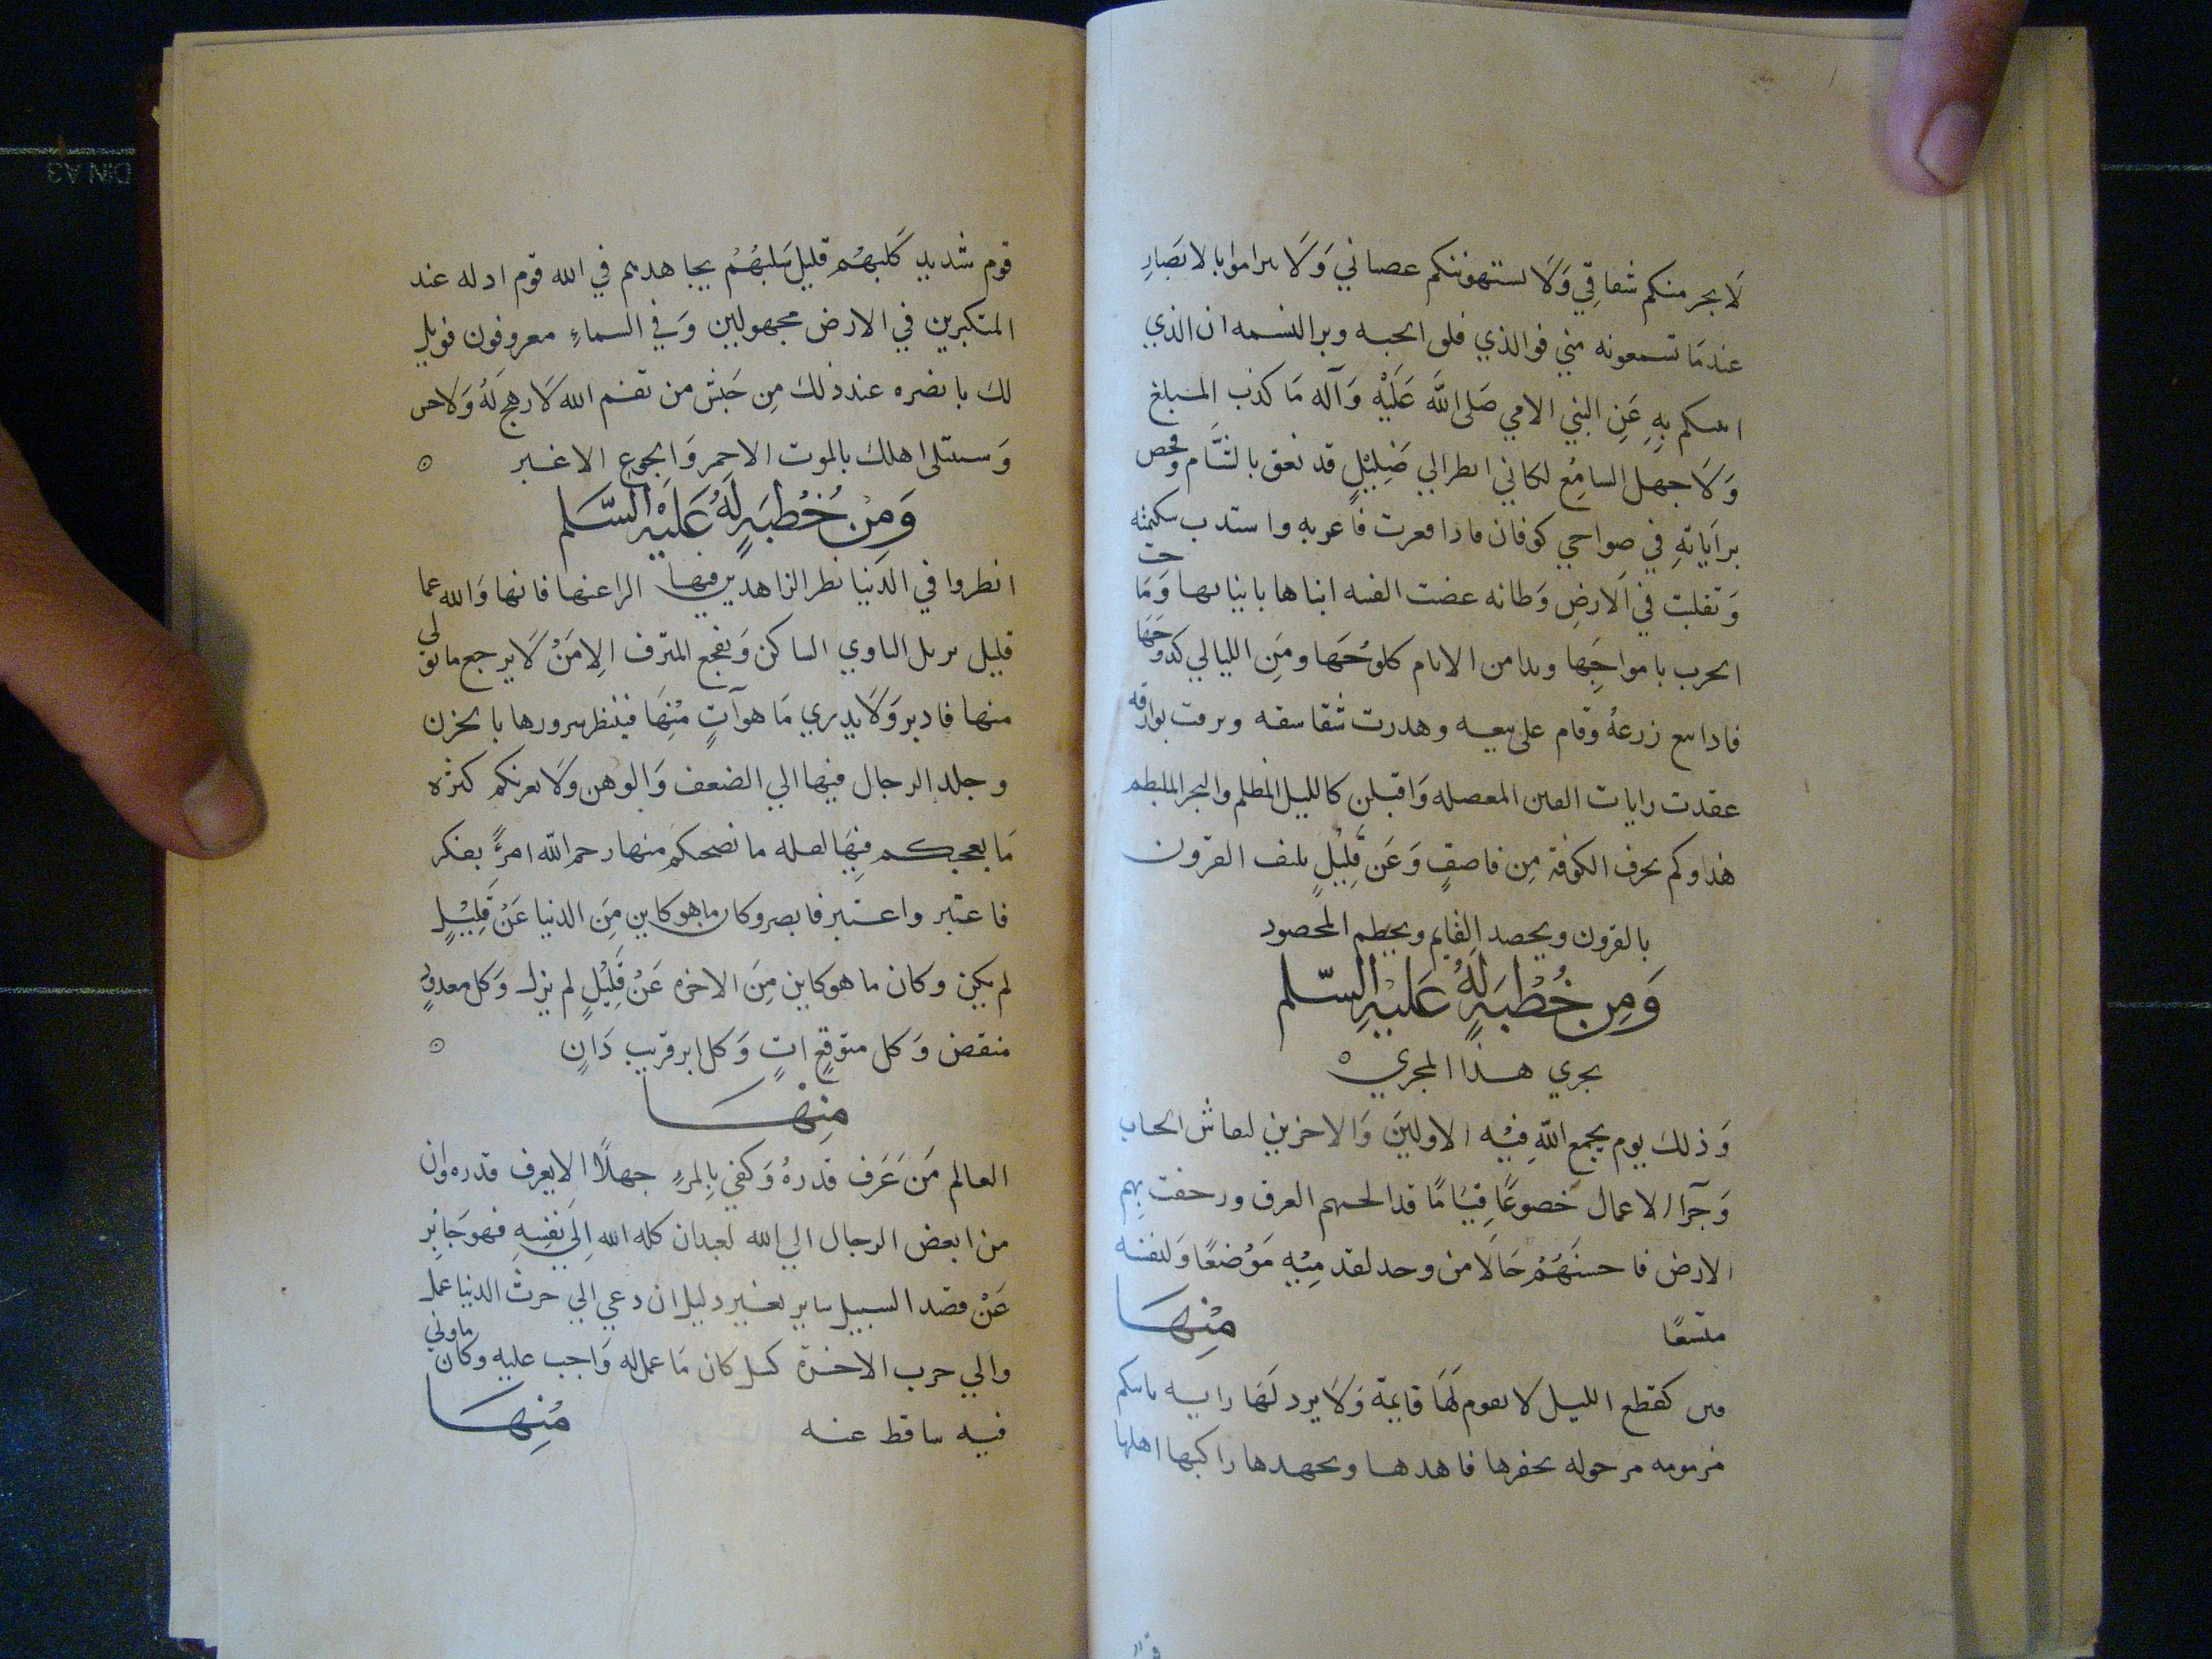 لَا يجرمنكم شقاقِي وَلَا يستهوينكم عصياني وَلَا تتراموا بالابصَارِ
عندمَا تسمعونه مني فوالذي فلق الحبه وبرا النسمه ان الذي
انبئكم بِهِ عَنِ النبي الامي صَلى اللَّه عَلَيْهِ وَآله مَا كذب المبلغ
وَلَا جهل السامِع لكاني انظر الي ضِليْلٍ قد نعق بالشَّام وفحص
برَاياتهِ فِي ضواحي كوفان فاذا فغرت فاغرته واشتدت شكيمته
وَثقلت في الَارضِ وَطاته عضت الفتنه ابناها بانيابها وَمَاجت
الحرب بامواجِهَا وبدا من الايام كلوُحُهَا ومِنَ الليالي كدوحَهَا
فاذا ينع زرعهُ وقام على ينعه وهدرت شقاشقه وبرقت بوارقه
عقدت رايات الفتن المعضله وَاقبلن كالليل المظلم والبحر الملتطم
هذا وكم يخرق الكوفة مِن قاصفٍ وَعَن قَلِيْلٍ تلتف القرون
بالقرون ويحصد القايم ويحطم المحصود
وَمِن خُطْبَةٍ لَهُ عَليْهِ السّلم
يجري هذا المجري
وَذلك يوم يجمع اللّه فِيْه الاوليَن وَالاخرين لنقاش الحساب
وَجَزَا الاعمال خصوعًا قِيَامًا قد الجمهم العرق ورجفت بهِم
الارض فاحسنَهُمْ حَالًا من وجد لقدميْهِ مَوْضعًا وَلنفسه
متسعًا مِنْهَا
فتن كقطع الليل لا تقوم لَهَا قايمة وَلَا يرد لَهَا رايه تاتيكم
مزمومه مرحوله يحفزها قايدها ويجهدها راكبها اهلها
قوم
قوم شديد كَلبهُم قليل سَلبهُمْ يجاهدهم في الله قوم اذله عند
المتكبرين في الارض مجهولين وَفي السماءِ معروفون فويل
لك يا بصره عند ذلك مِن جَيْش من نقم الله لَا رهج لَهُ وَلَا حس
وَسيبتلى اهلك بالموت الاحمر وَالجوع الاغبر
وَمِنْ خُطْبَةٍ لَهُ عَليْهِ السَّلم
انظروا في الدنيا نظر الزاهدين فيها الراغبين عنها فانها وَالله عما
قليل تزيل الثاوي الساكن وَتفجع المترف الامَنْ لَا يرجع ما تولي
منها فادبر وَلَا يدري مَا هو آتٍ مِنهَا فينتظر سرورها بالحزن
وجلد الرجال فيها الي الضعف وَالوهن وَلَا يغرنكم كثره
مَا يعجبكم فِيهَا لقله ما يصحبكم منها رحم الله امرءً تفكر
فاعتبر واعتبر فابصر وكان ما هو كاين مِنَ الدنيا عَنْ قَلِيْلٍ
لم يكن وكان ما هو كاين مِنَ الاخره عَنْ قَلِيْلٍ لم يزل وَكل معدودٍ
منقض وَكل متوقعٍ اتٍ وَكل ات قريب دَانٍ
مِنْهَا
العالم مَن عَرَف قدرهُ وَكفي بالمرءِ جهلًا الا يعرف قدره وان
من ابغض الرجال الي الله لعبدان كله الله اِلَي نفسِهِ فهو جَايرٍ
عَنْ قصد السبيل ساير بغير دليل ان دعي الي حرث الدنيا عمل
والي حرث الاخرة كسل كان مَا عمل له وَاجب عليه وكان ما وني
فيه ساقط عنه مِنهَا